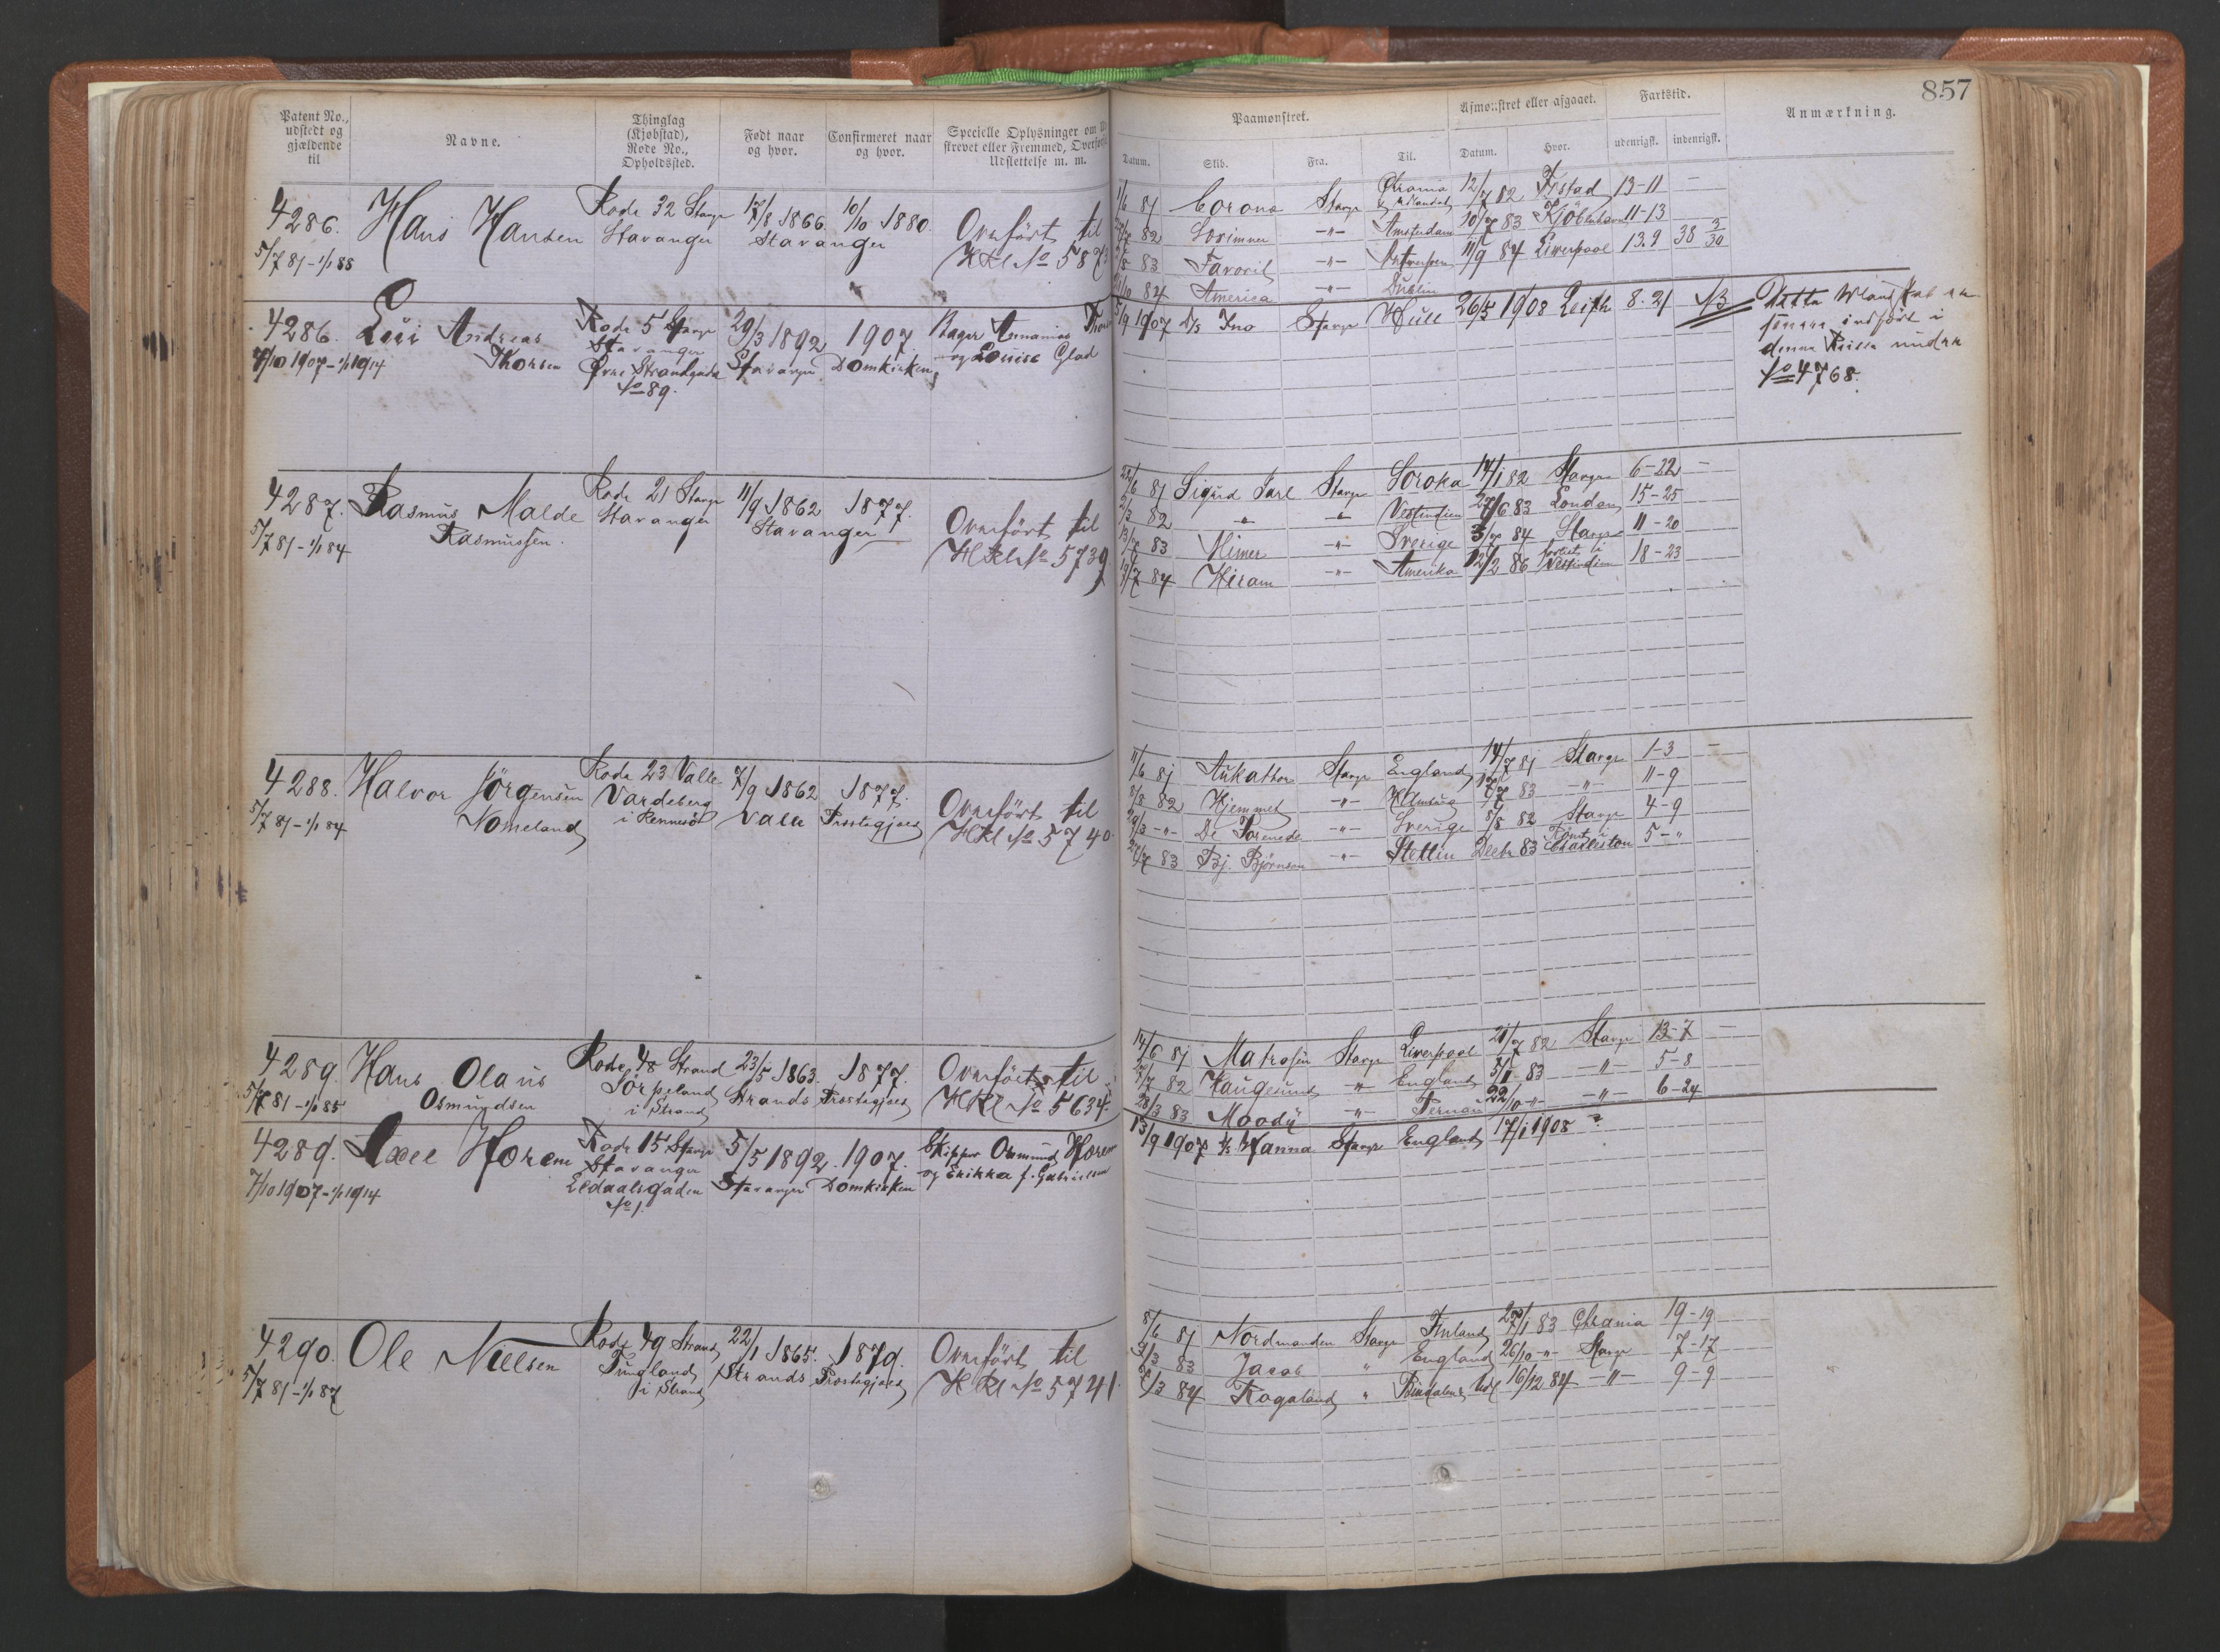 857
Patent No., udstedt og gjældende til
Navne.
Thinglag (Kjøbstad), Rode No., Opholdssted.
Født naar og hvor.
Confirmeret naar og hvor.
Specielle Oplysninger om
strevet eller Fremmed, Overført
Udslettelse m. m.
Paamønstret.
Afmønstret eller afgaaet.
Fartstid.
Anmærkning.
Datum. Skib. Fra. Til. Datum. Hvor. udenrigsk. indenrigsk.
4286. Hans Hansen Rode 32 Stavgr 17/8 1866. 10/10 1880. Overført til
5/7 81 - 1/1 88 Stavanger Stavanger HKl No 587
81 Corona Stavgr 12/7 82 Ystad 13-11 —
82 Sorimner -"- Amsterdam 10/7 83 Kjöbenhavn 11-13
83 Favorit -"- Antwerpen 11/9 84 Liverpool 13.9 38 3/30
84 America -"- Dublin
4286. Andreas Thorsen Rode 5 Stavgr 29/3 1892 1907. Bager Annanias
7/10 1907 - 1/1 1914 Stavanger Øvre Strandgade No 89. Stavanger Domkirken og Louise Glad
1907 D/s Ino Stavgr Hull 26/5 1908 Leith 8.21
Dette Mandskab er
denne Rulle under
No 4768.
4287. Rasmus Malde Rasmussen. Rode 21 Stavgr 11/9 1862 1877. Overført til
5/7 81 - 1/1 84 Stavanger Stavanger HKl No 5739
81 Sigurd Jarl Stavgr Soroka 14/1 82 Stavgr 6-22 —
2/3 82 " " Vestindien 83 London 15-25
83 Mimer -"- Sverige 84 Stavgr 11-20
19/7 84 Hiram -"- Amerika 12/2 86 Vestindien 18-23
4288. Halvor Jörgensen Nomeland Rode 23 Valle 7/9 1862 1877. Overført til
5/7 81 - 1/1 84 Vardeberg i Rennesö Valle Prostegjæld HKl No 5740.
11/6 81 Stavgr England 14/7 81 Stavgr 1-3 —
82 Hjemmet -"- 83 -"- 11-9
-"- De -"- Sverige 8/8 82 Stavgr 4-9
83 Bj. Björnson -"- Stettin Decbr 83 Römt i Charleston 5-"
4289. Hans Olaus Osmundsen Rode 48 Strand 23/5 1863. 1877. Overført til
5/7 81 - 1/1 85 Jörpeland i Strand Strands Prostegjæld HKl No 5634.
14/6 81 Matrosen Stavgr Liverpool 82 Stavgr 13-7 —
82 Haugesund " England 83 -"- 5-8
28/3 83 Moody " 22/10 -"- -"- 6-24
4289. Axel Horem Rode 15 Stavgr 5/5 1892. 1907. Skipper Osmund Horem
7/10 1907 - 1/1 1914 Stavanger Eldaalsgaden No 1. Stavanger Domkirken og Erikka f. Gabrielsen
13/9 1907 Hanna Stavgr England 17/1 1908
4290. Ole Nielsen Rode 49 Strand 22/1 1865. 1879. Overført til
5/7 81 - 1/1 87 Tungland i Strand Strands Prostegjæld HKl No 5741.
8/6 81 Nordmanden Stavgr Finland 83 Chrania 19-19
83 Jacob " England 26/10 -"- Stavgr 7-17
84 Rogaland " 16/12 84 -"- 9-9